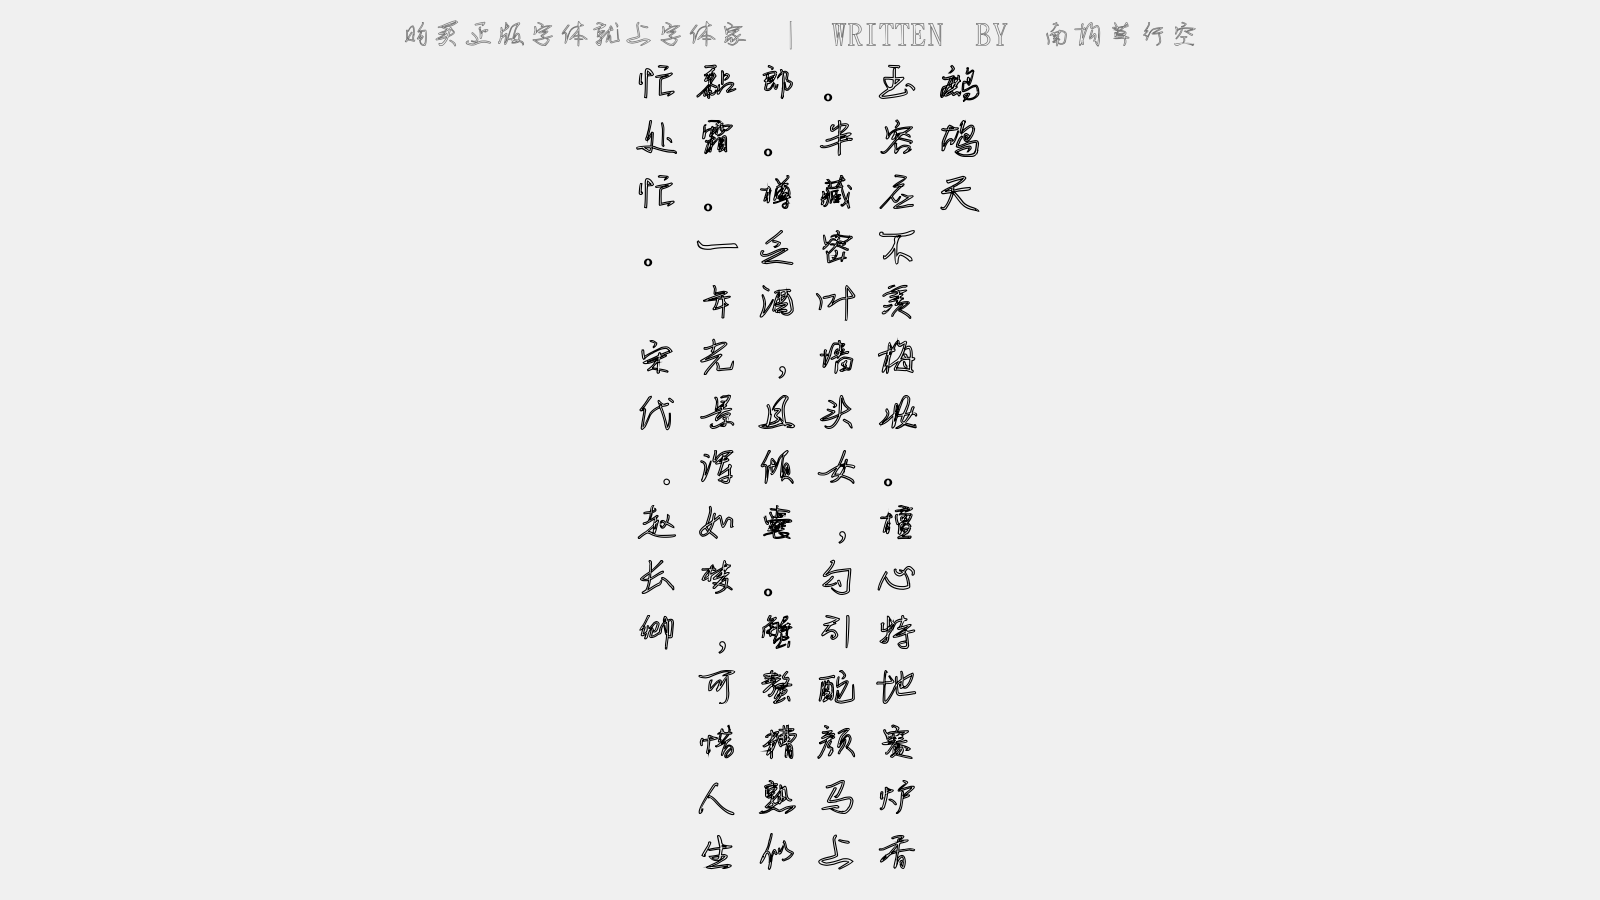 购买正版字体就上字体家 | WRITTEN BY 南构草行空
鹧鸪天
玉容应不羡梅妆。檀心特地赛炉香
。半藏密叶墙头女,勾引酡颜马上
郎。。樽乏酒,且倾囊。蟹螯糟熟似
黏霜。一年光景浑如梦,可惜人生
忙处忙。
宋代。赵长卿